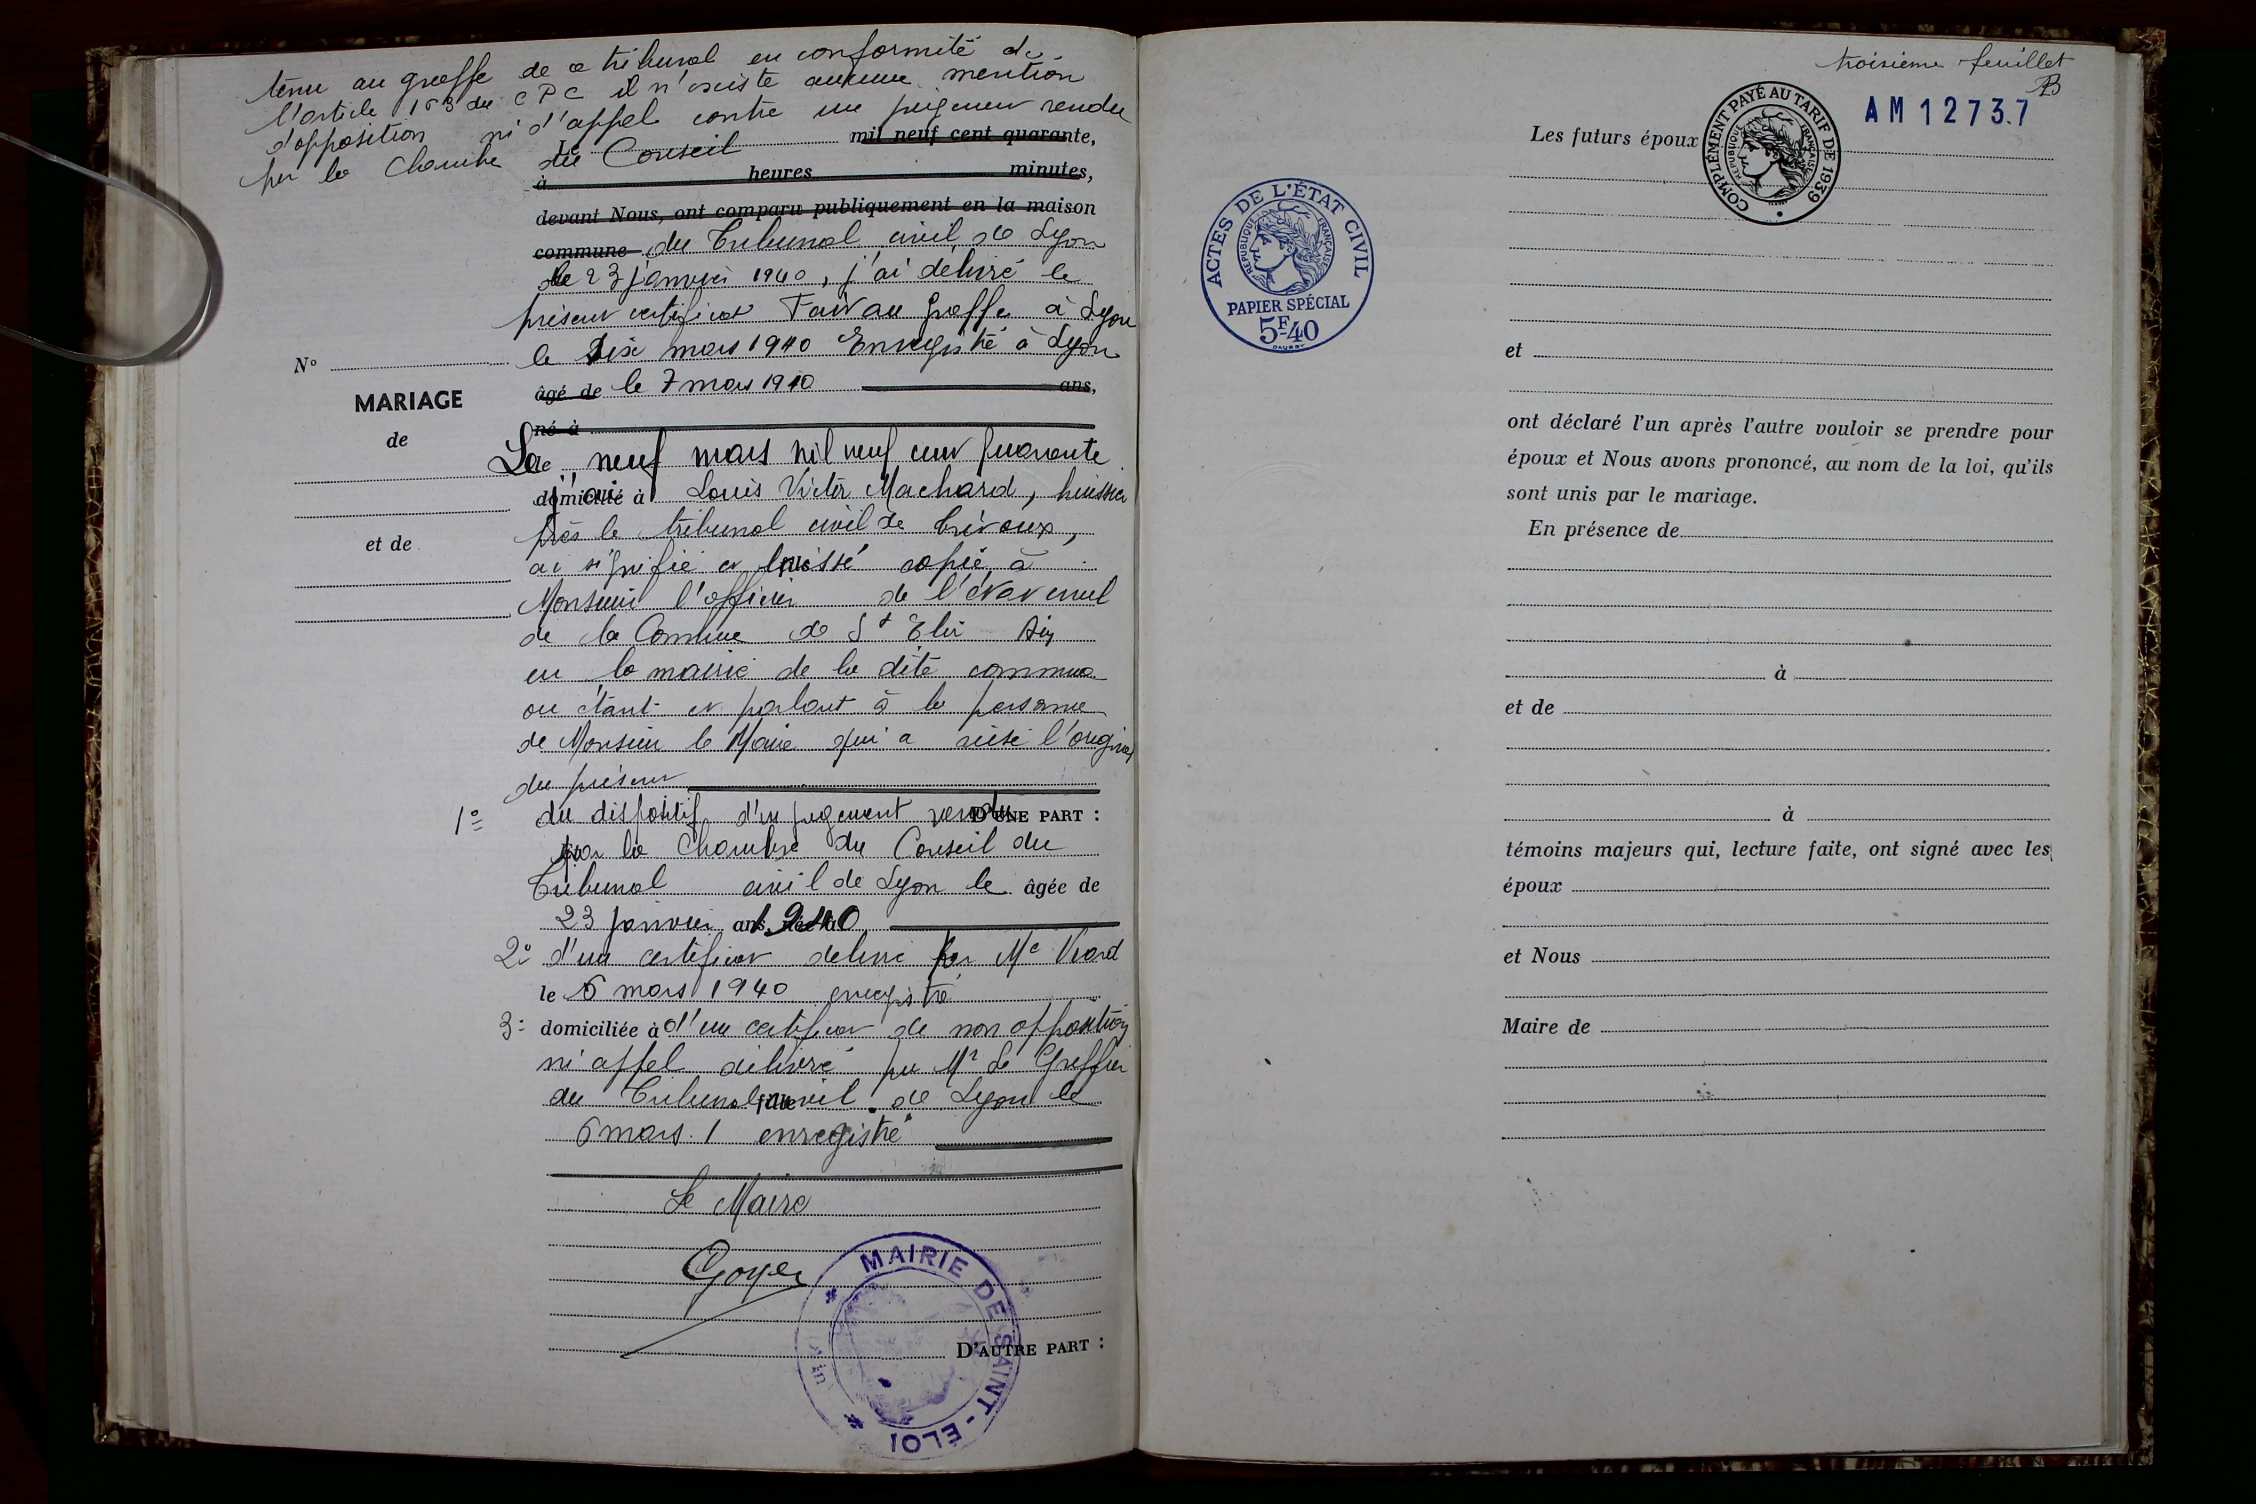 tenu au greffe de ce tribunal en conformité de
l'article 163 du C P C il n'existe aucune mention
d'opposition ni d'appel contre un jugement rendu
Le mil neuf cent quarante,
par la Chambre du Conseil
à heures minutes,
devant Nous, ont comparu publiquement en la maison
commune du Tribunal civil de Lyon
le 23 janvier 1940, j'ai délivré le
présent certificat Fait au greffe à Lyon
le Six mars 1940 Enregistré à Lyon
âgé de le 7 mars 1940 ans,
né à
Le neuf mars mil neuf cent quarante
domicilié à j'ai Louis Victor Machard, huissier
près le tribunal civil de Trévoux,
ai signifié et laissé copie à
Monsieur l'officier de l'état civil
de la Commune de St Eloi Ain
en la mairie de la dite commune
ou étant et parlant à la personne
de Monsieur le Maire qui a visé l'original
du présent
D'UNE PART :
1° du dispositif d'un jugement rendu
par la Chambre du Conseil du
Tribunal civil de Lyon le âgée de
23 janvier 1940 ans, née à
2° d'un certificat délivré par Me Viard
le 6 mars 1940 enregistré
3° domiciliée à d'un certificat de non opposition
ni appel délivré par Mr Le Greffier
du Tribunal civil de Lyon le
fille
6 mars. 1 enregistré
Le Maire
Goyer
D'AUTRE PART :
MAIRIE DE SAINT-ELOI
Ain
N°
MARIAGE
de
et de
troisième feuillet
AM 12737
COMPLÉMENT PAYÉ AU TARIF DE 1939
RÉPUBLIQUE FRANÇAISE
ACTES DE L'ÉTAT CIVIL
RÉPUBLIQUE FRANÇAISE
PAPIER SPÉCIAL
5F40
Les futurs époux
et
ont déclaré l'un après l'autre vouloir se prendre pour
époux et Nous avons prononcé, au nom de la loi, qu'ils
sont unis par le mariage.
En présence de
à
et de
à
témoins majeurs qui, lecture faite, ont signé avec les
époux
et Nous
Maire de